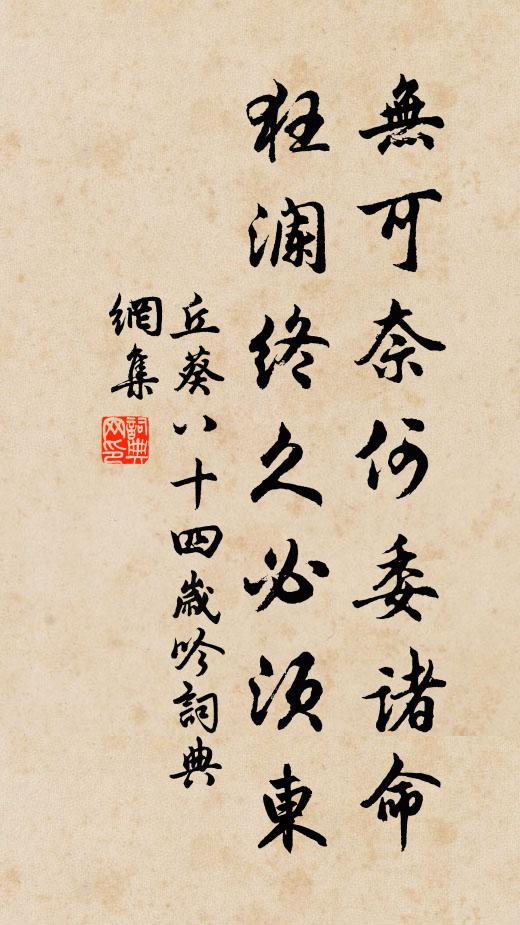 無可奈何委諸命
狂瀾終久必須東
丘葵八十四歲吟詞典
網集
詞典
网印